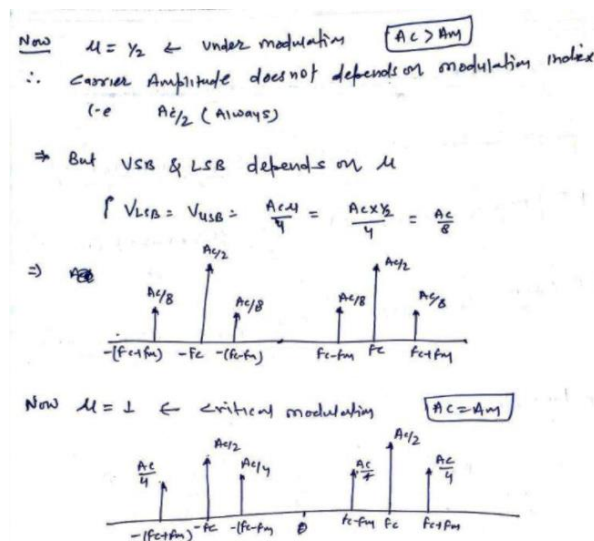 Now μ = 1/2 ← under modulation Ac > Am
∴ carrier Amplitude does not depends on modulation index
i-e Ac/2 (Always)
⇒ But VSB & LSB depends on μ
VLSB = VUSB = Acμ/4 = Ac×1/2/4 = Ac/8
⇒)
Ac/2 Ac/2
Ac/8 Ac/8 Ac/8 Ac/8
-(fc+fm) -fc -(fc-fm) fc-fm fc fc+fm
Now μ = 1 ← critical modulation Ac = Am
Ac/2 Ac/2
Ac/4 Ac/4 Ac/4 Ac/4
-(fc+fm) -fc -(fc-fm 0 fc-fm fc fc+fm